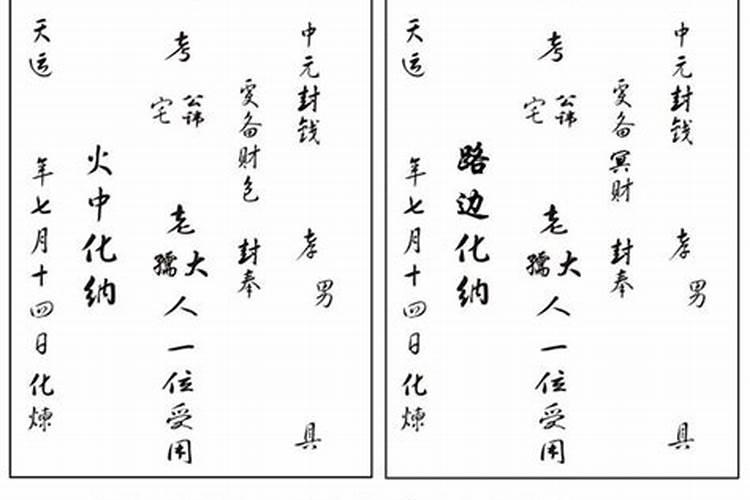 中元封钱 孝男 具
爰备冥财 封奉
考 公讳 宅 老大孺人一位受用
路边化纳
天运 年七月十四日化煉
中元封钱 孝男 具
爰备财包 封奉
考 公讳 宅 老大孺人一位受用
火中化纳
天运 年七月十四日化煉